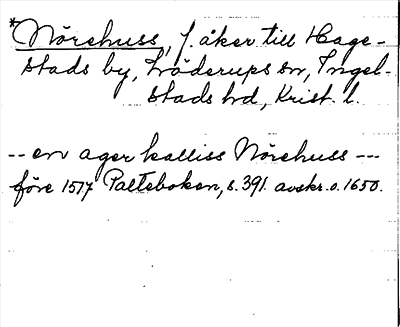 *Nörehuss, f. åker till Hage-
stads by, Löderups sn, Ingel-
stads hd, Krist. l.
-- en ager kalliss Nörehuss ---
före 1517 Palteboken, s. 391. avskr. o. 1650.